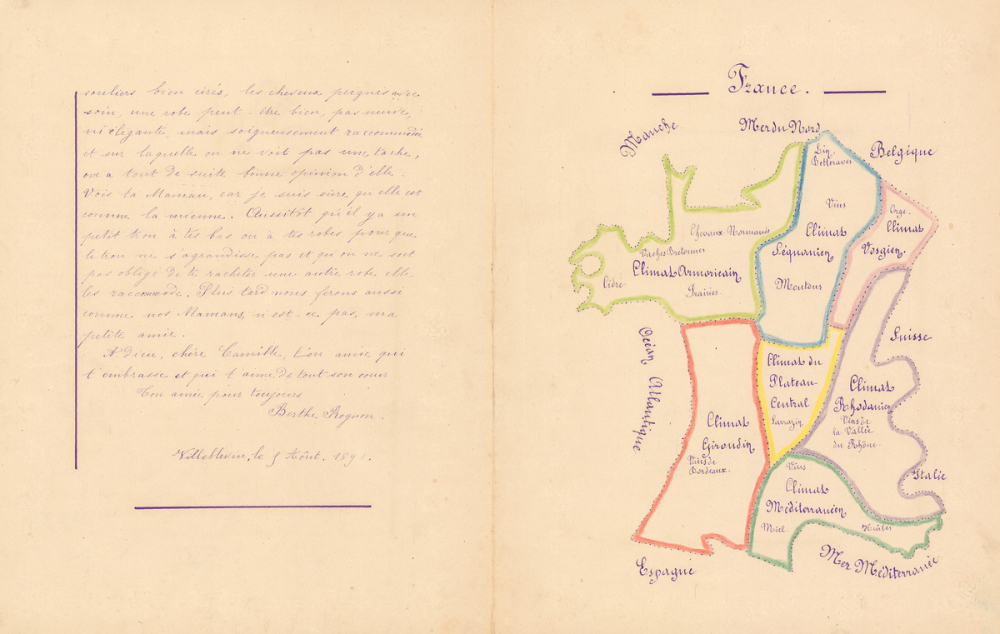 souliers bien cirés, les cheveux peignés avec
soin, une robe peut-être bien, pas neuve,
ni élégante, mais soigneusement raccommodée
et sur laquelle on ne voit pas une tache,
on a tout de suite bonne opinion d'elle.
Vois ta Maman, car je suis sûre, qu'elle est
comme la mienne. Aussitôt qu'il y a un
petit trou à tes bas ou à tes robes pour que
le trou ne s'agrandisse pas et qu'on ne soit
pas obligé de te racheter une autre robe elle
les raccommode. Plus tard nous ferons aussi
comme nos Mamans, n'est-ce pas, ma
petite amie.
Adieu, chère Camille, ton amie qui
t'embrasse et qui t'aime de tout son cœur
Ton amie pour toujours
Berthe
Villeblevin, le 5 Août. 189
France.
Manche
Mer du Nord
Belgique
Lin
Betteraves
Vins
Climat
Séquanien
Moutons
Orge.
Climat
Vosgien
Chevaux Normands
Vaches Bretonnes
Climat Armoricain
Cidre
Prairies.
Océan Atlantique
Suisse
Climat du
Plateau
Central
Sarrazin
Climat
Rhodanien
Vins de
la Vallée
du Rhône
Climat
Girondin
Vins de
Bordeaux.
Italie
Vins
Climat
Méditerranéen
Miel
Huiles
Espagne
Mer Méditerranée